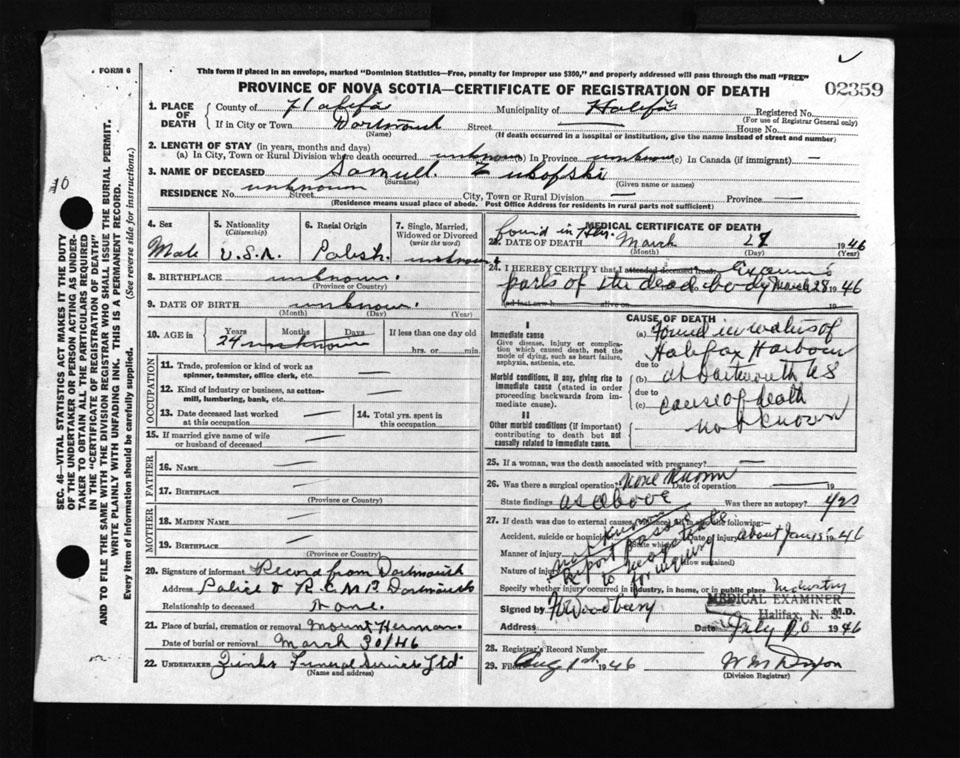 FORM 6
This form if placed in an envelope, marked "Dominion Statistics—Free, penalty for improper use $300," and properly addressed will pass through the mail "FREE"
PROVINCE OF NOVA SCOTIA—CERTIFICATE OF REGISTRATION OF DEATH
02359
1. PLACE OF DEATH County of Halifax Municipality of Halifax Registered No.
(For use of Registrar General only)
If in City or Town Dartmouth Street — House No.
(Name) (If death occurred in a hospital or institution, give the name instead of street and number)
2. LENGTH OF STAY (in years, months and days)
(a) In City, Town or Rural Division where death occurred unknown (b) In Province unknown (c) In Canada (if immigrant) —
3. NAME OF DECEASED Samuel Zukofski
(Surname) (Given name or names)
RESIDENCE No. unknown Street City, Town or Rural Division — Province —
(Residence means usual place of abode. Post Office Address for residents in rural parts not sufficient)
4. Sex
Male
5. Nationality
(Citizenship)
U.S.A.
6. Racial Origin
Polish
7. Single, Married, Widowed or Divorced
(write the word)
unknown
8. BIRTHPLACE unknown.
(Province or Country)
9. DATE OF BIRTH unknown.
(Month) (Day) (Year)
10. AGE in Years Months Days If less than one day old
24 unknown hrs. or min.
OCCUPATION
11. Trade, profession or kind of work as spinner, teamster, office clerk, etc. —
12. Kind of industry or business, as cotton-mill, lumbering, bank, etc. —
13. Date deceased last worked at this occupation
14. Total yrs. spent in this occupation
15. If married give name of wife or husband of deceased —
FATHER
16. NAME —
17. BIRTHPLACE —
(Province or Country)
MOTHER
18. MAIDEN NAME —
19. BIRTHPLACE —
(Province or Country)
20. Signature of informant Record from Dartmouth
Address Police & R.C.M.P. Dartmouth
Relationship to deceased None.
21. Place of burial, cremation or removal Mount Herman.
Date of burial or removal March 30/46
22. UNDERTAKER Zinks Funeral Service Ltd
(Name and address)
MEDICAL CERTIFICATE OF DEATH
found in
23. DATE OF DEATH March 28 1946
(Month) (Day) (Year)
24. I HEREBY CERTIFY that I attended deceased from Examined
parts of the dead body March 28 1946
CAUSE OF DEATH
I
Immediate cause
Give disease, injury or complication which caused death, not the mode of dying, such as heart failure, asphyxia, asthenia, etc.
Morbid conditions, if any, giving rise to immediate cause (stated in order proceeding backwards from immediate cause).
II
Other morbid conditions (if important) contributing to death but not causally related to immediate cause.
(a) Found in waters of
Halifax Harbour
due to
(b) at Dartmouth N S
due to
(c) cause of death
not known
25. If a woman, was the death associated with pregnancy? —
26. Was there a surgical operation? None Known Date of operation 19
State findings as above Was there an autopsy? yes
27. If death was due to external causes (violence) fill in also the following:
Accident, suicide or homicide Date of injury about Jan 15 1946
Manner of injury
Nature of injury
not known
report passed
to magistrate
for inquiry
Specify whether injury occurred in industry, in home, or in public place Industry
Signed by M.D.
MEDICAL EXAMINER
Halifax, N. S.
Address Date July 10 1946
28. Registrar's Record Number
29. Filed Aug 1st 1946 W M Dixon
(Division Registrar)
SEC. 46—VITAL STATISTICS ACT MAKES IT THE DUTY
OF THE UNDERTAKER OR PERSON ACTING AS UNDERTAKER TO OBTAIN ALL THE PARTICULARS REQUIRED
IN THE "CERTIFICATE OF REGISTRATION OF DEATH"
AND TO FILE THE SAME WITH THE DIVISION REGISTRAR WHO SHALL ISSUE THE BURIAL PERMIT.
WRITE PLAINLY WITH UNFADING INK. THIS IS A PERMANENT RECORD.
Every item of information should be carefully supplied. (See reverse side for instructions.)